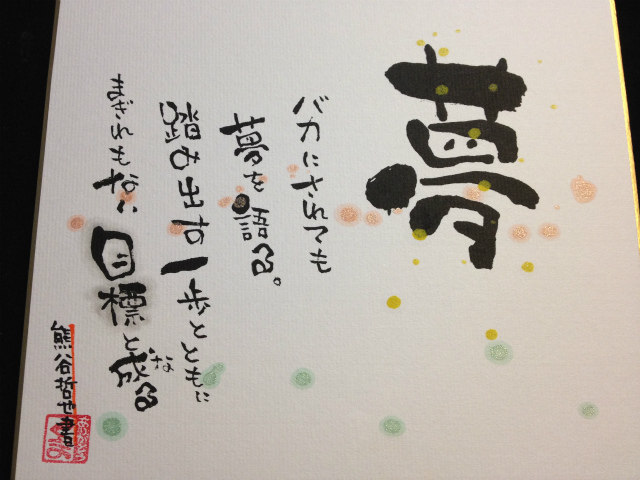 夢
バカにされても
夢を語る。
踏み出す一歩とともに
まぎれもない目標と成る
な
熊谷哲也書